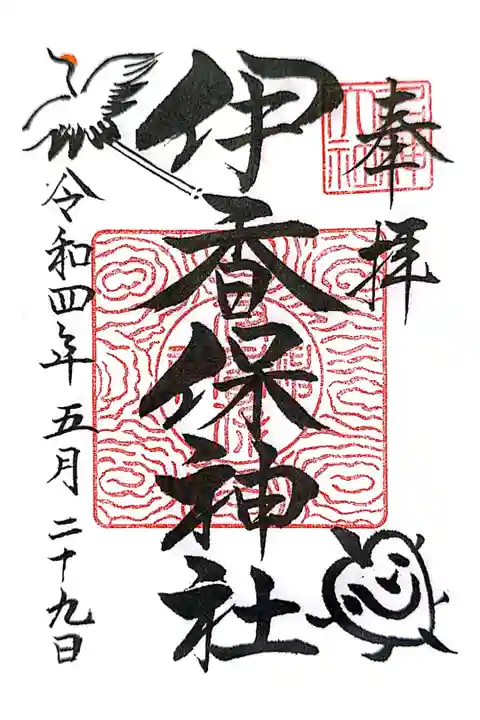 奉拝
伊香保神社
令和四年五月二十九日